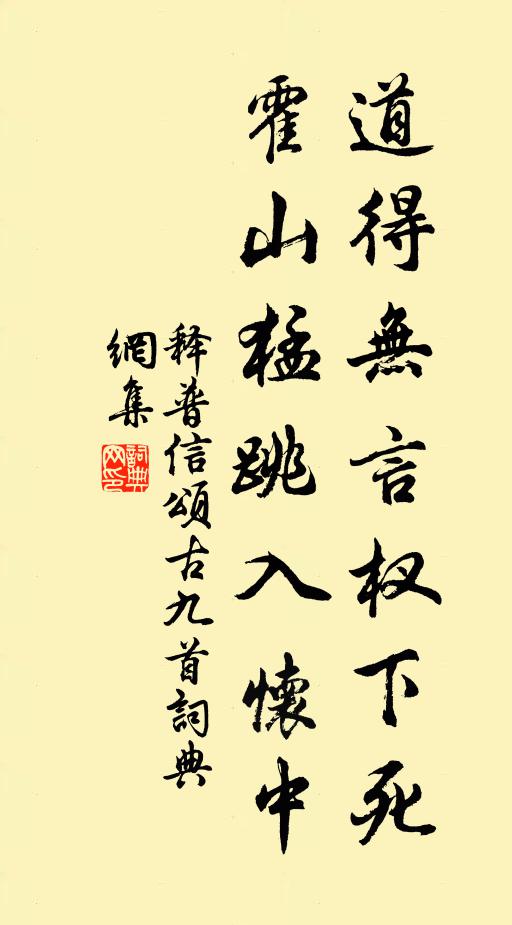 道得無言杈下死
霍山猛跳入懷中
释普信頌古九首詞典
網集
詞典
网印